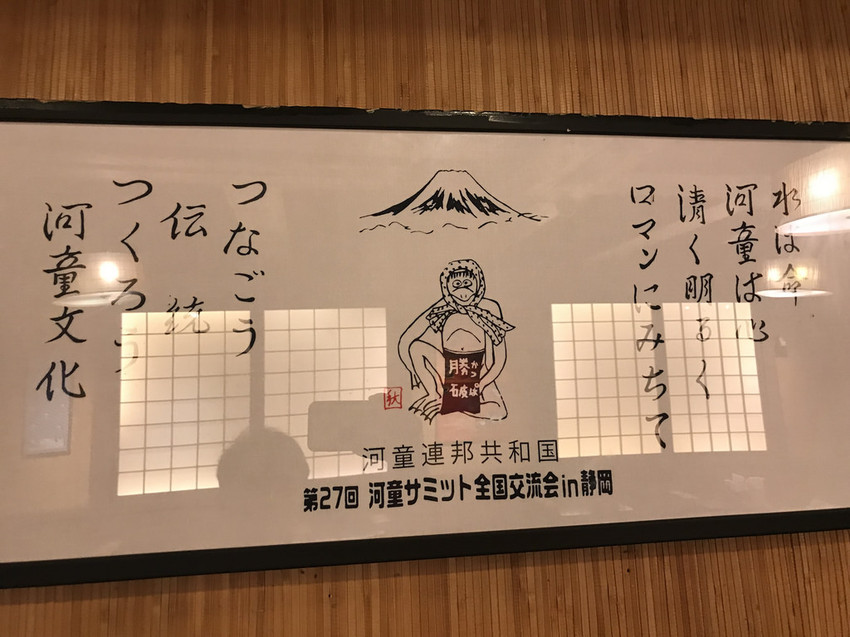 水は命
河童は心
清く明るく
ロマンにみちて
つなごう
伝統
つくろう
河童文化
勝かっ
破ぱ
秋
河童連邦共和国
第27回 河童サミット全国交流会in静岡